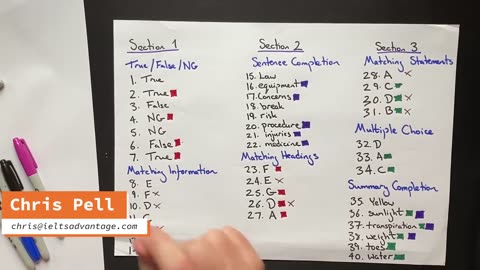 Section 1
True/False/NG
1. True
2. True
3. False
4. NG
5. NG
6. False
7. True
Matching Information
8. E
9. F x
10. D x
11. C
Section 2
Sentence Completion
15. Law
16. equipment
17. Concerns
18. break
19. risk
20. procedure
21. injuries
22. medicine
Matching Headings
23. F
24. E x
25. G
26. D x
27. A
Section 3
Matching Statements
28. A x
29. C
30. D x
31. B x
Multiple Choice
32. D
33. A
34. C
Summary Completion
35. Yellow
36. sunlight
37. transpiration
38. weight
39. toes
40. water
Chris Pell
chris@ieltsadvantage.com